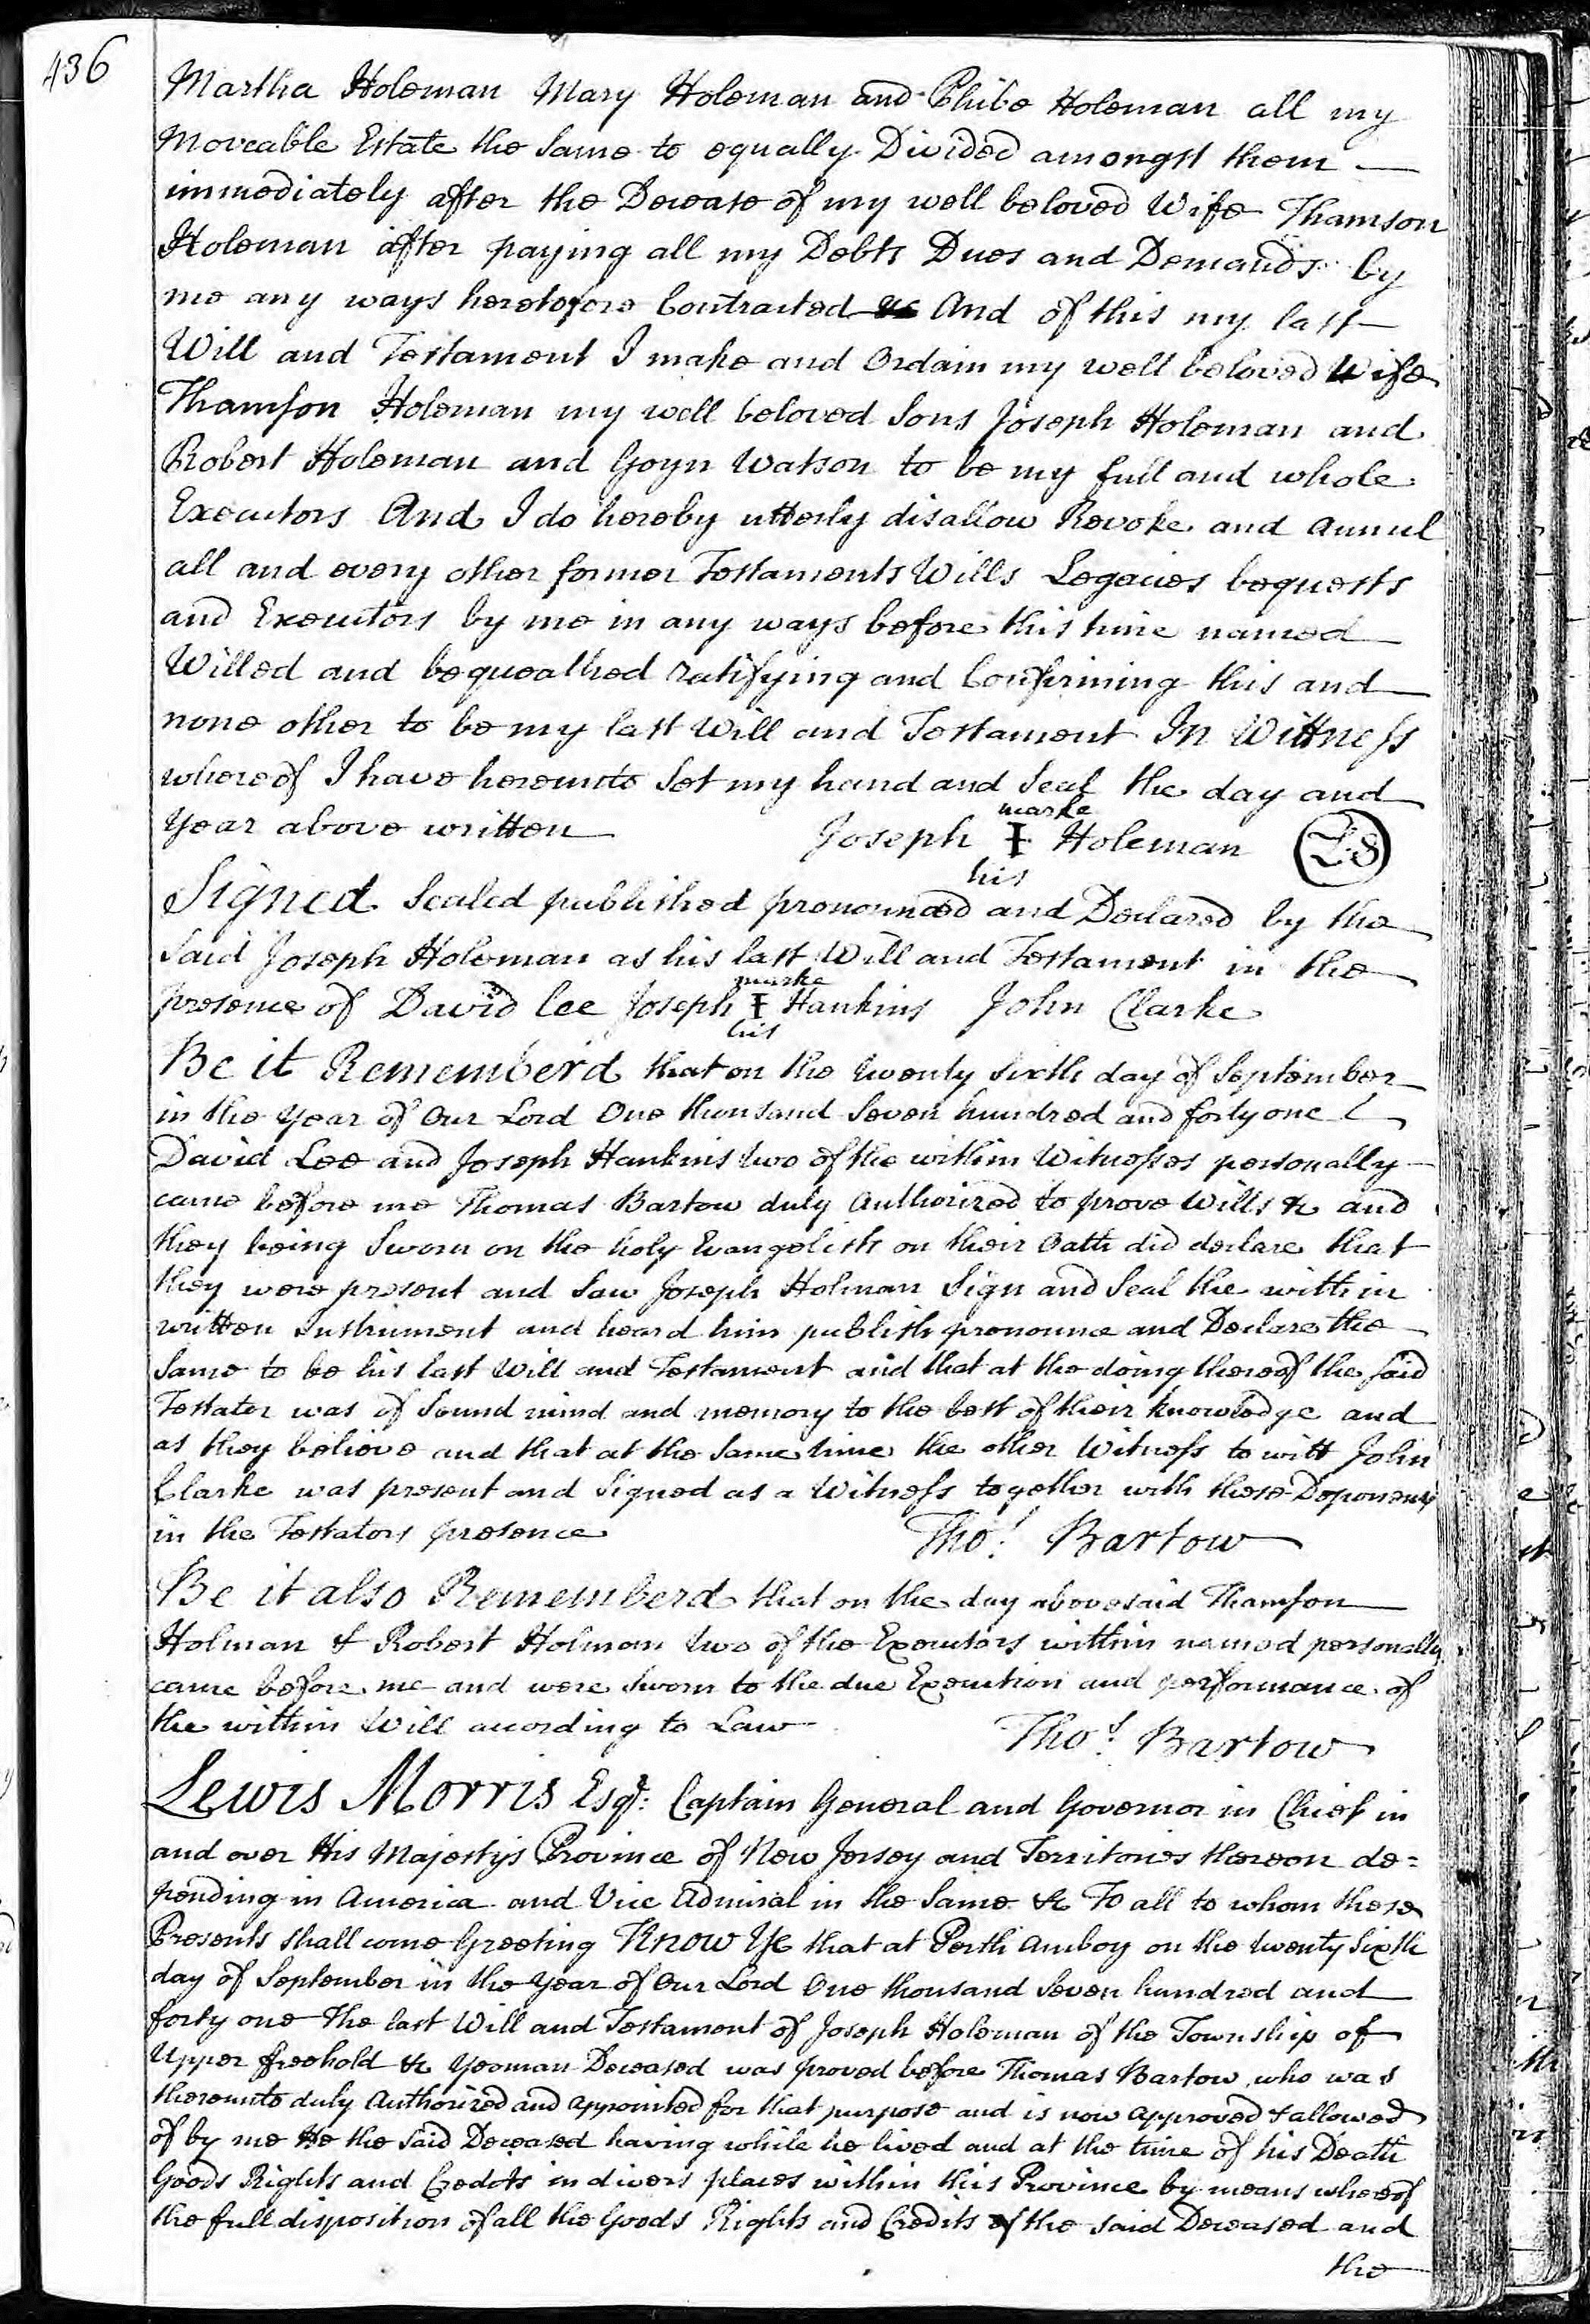 436
Martha Holeman Mary Holeman and Phibe Holeman all my
Moveable Estate the Same to equally Divided amongst them
immediately after the Decease of my well beloved Wife Thamson
Holeman after paying all my Debts Dues and Demands by
me any ways heretofore Contracted &c And of this my last
Will and Testament I make and Ordain my well beloved Wife
Thamson Holeman my well beloved Sons Joseph Holeman and
Robert Holeman and Goyn Watson to be my full and whole
Executors And I do hereby utterly disallow Revoke and annul
all and every other former Testaments Wills Legacies bequests
and Executors by me in any ways before this time named
Willed and bequeathed ratifying and Confirming this and
none other to be my last Will and Testament In Wittness
whereof I have hereunto Set my hand and Seal the day and
marke
Year above written Joseph I Holeman LS
his
Signed Sealed published pronounced and Declared by the
Said Joseph Holeman as his last Will and Testament in the
marke
presence of David Lee Joseph I Hankins John Clarke
his
Be it Rememberd that on the twenty sixth day of September
in the Year of Our Lord One thousand Seven hundred and forty one
David Lee and Joseph Hankins two of the within Witnesses personally
came before me Thomas Bartow duly Authorized to prove Wills &c and
they being Sworn on the holy Evangelists on their Oath did declare that
they were present and Saw Joseph Holman Sign and Seal the within
written Instrument and heard him publish pronounce and Declare the
Same to be his last Will and Testament and that at the doing thereof the said
Testator was of Sound mind and memory to the best of their knowledge and
as they believe and that at the Same time the other Witness to witt John
Clarke was present and Signed as a Witness together with these Deponents
in the Testators presence Thos. Bartow
Be it also Rememberd that on the day abovesaid Thamson
Holman & Robert Holman two of the Executors within named personally
came before me and were Sworn to the due Execution and performance of
the within Will according to Law Thos. Bartow
Lewis Morris Esqr: Captain General and Governor in Chief in
and over His Majestys Province of New Jersey and Territories thereon de=
pending in America and Vice Admiral in the Same &c To all to whom these
Presents shall come Greeting Know Ye that at Perth Amboy on the twenty Sixth
day of September in the Year of Our Lord One thousand Seven hundred and
forty one The last Will and Testament of Joseph Holeman of the Township of
Upper freehold &c Yeoman Deceased was proved before Thomas Bartow who was
thereunto duly Authorized and appointed for that purpose and is now approved & allowed
of by me He the Said Deceased having while he lived and at the time of his Death
Goods Rights and Credits in divers places within this Province by means whereof
the full disposition of all the Goods Rights and Credits of the said Deceased and
the